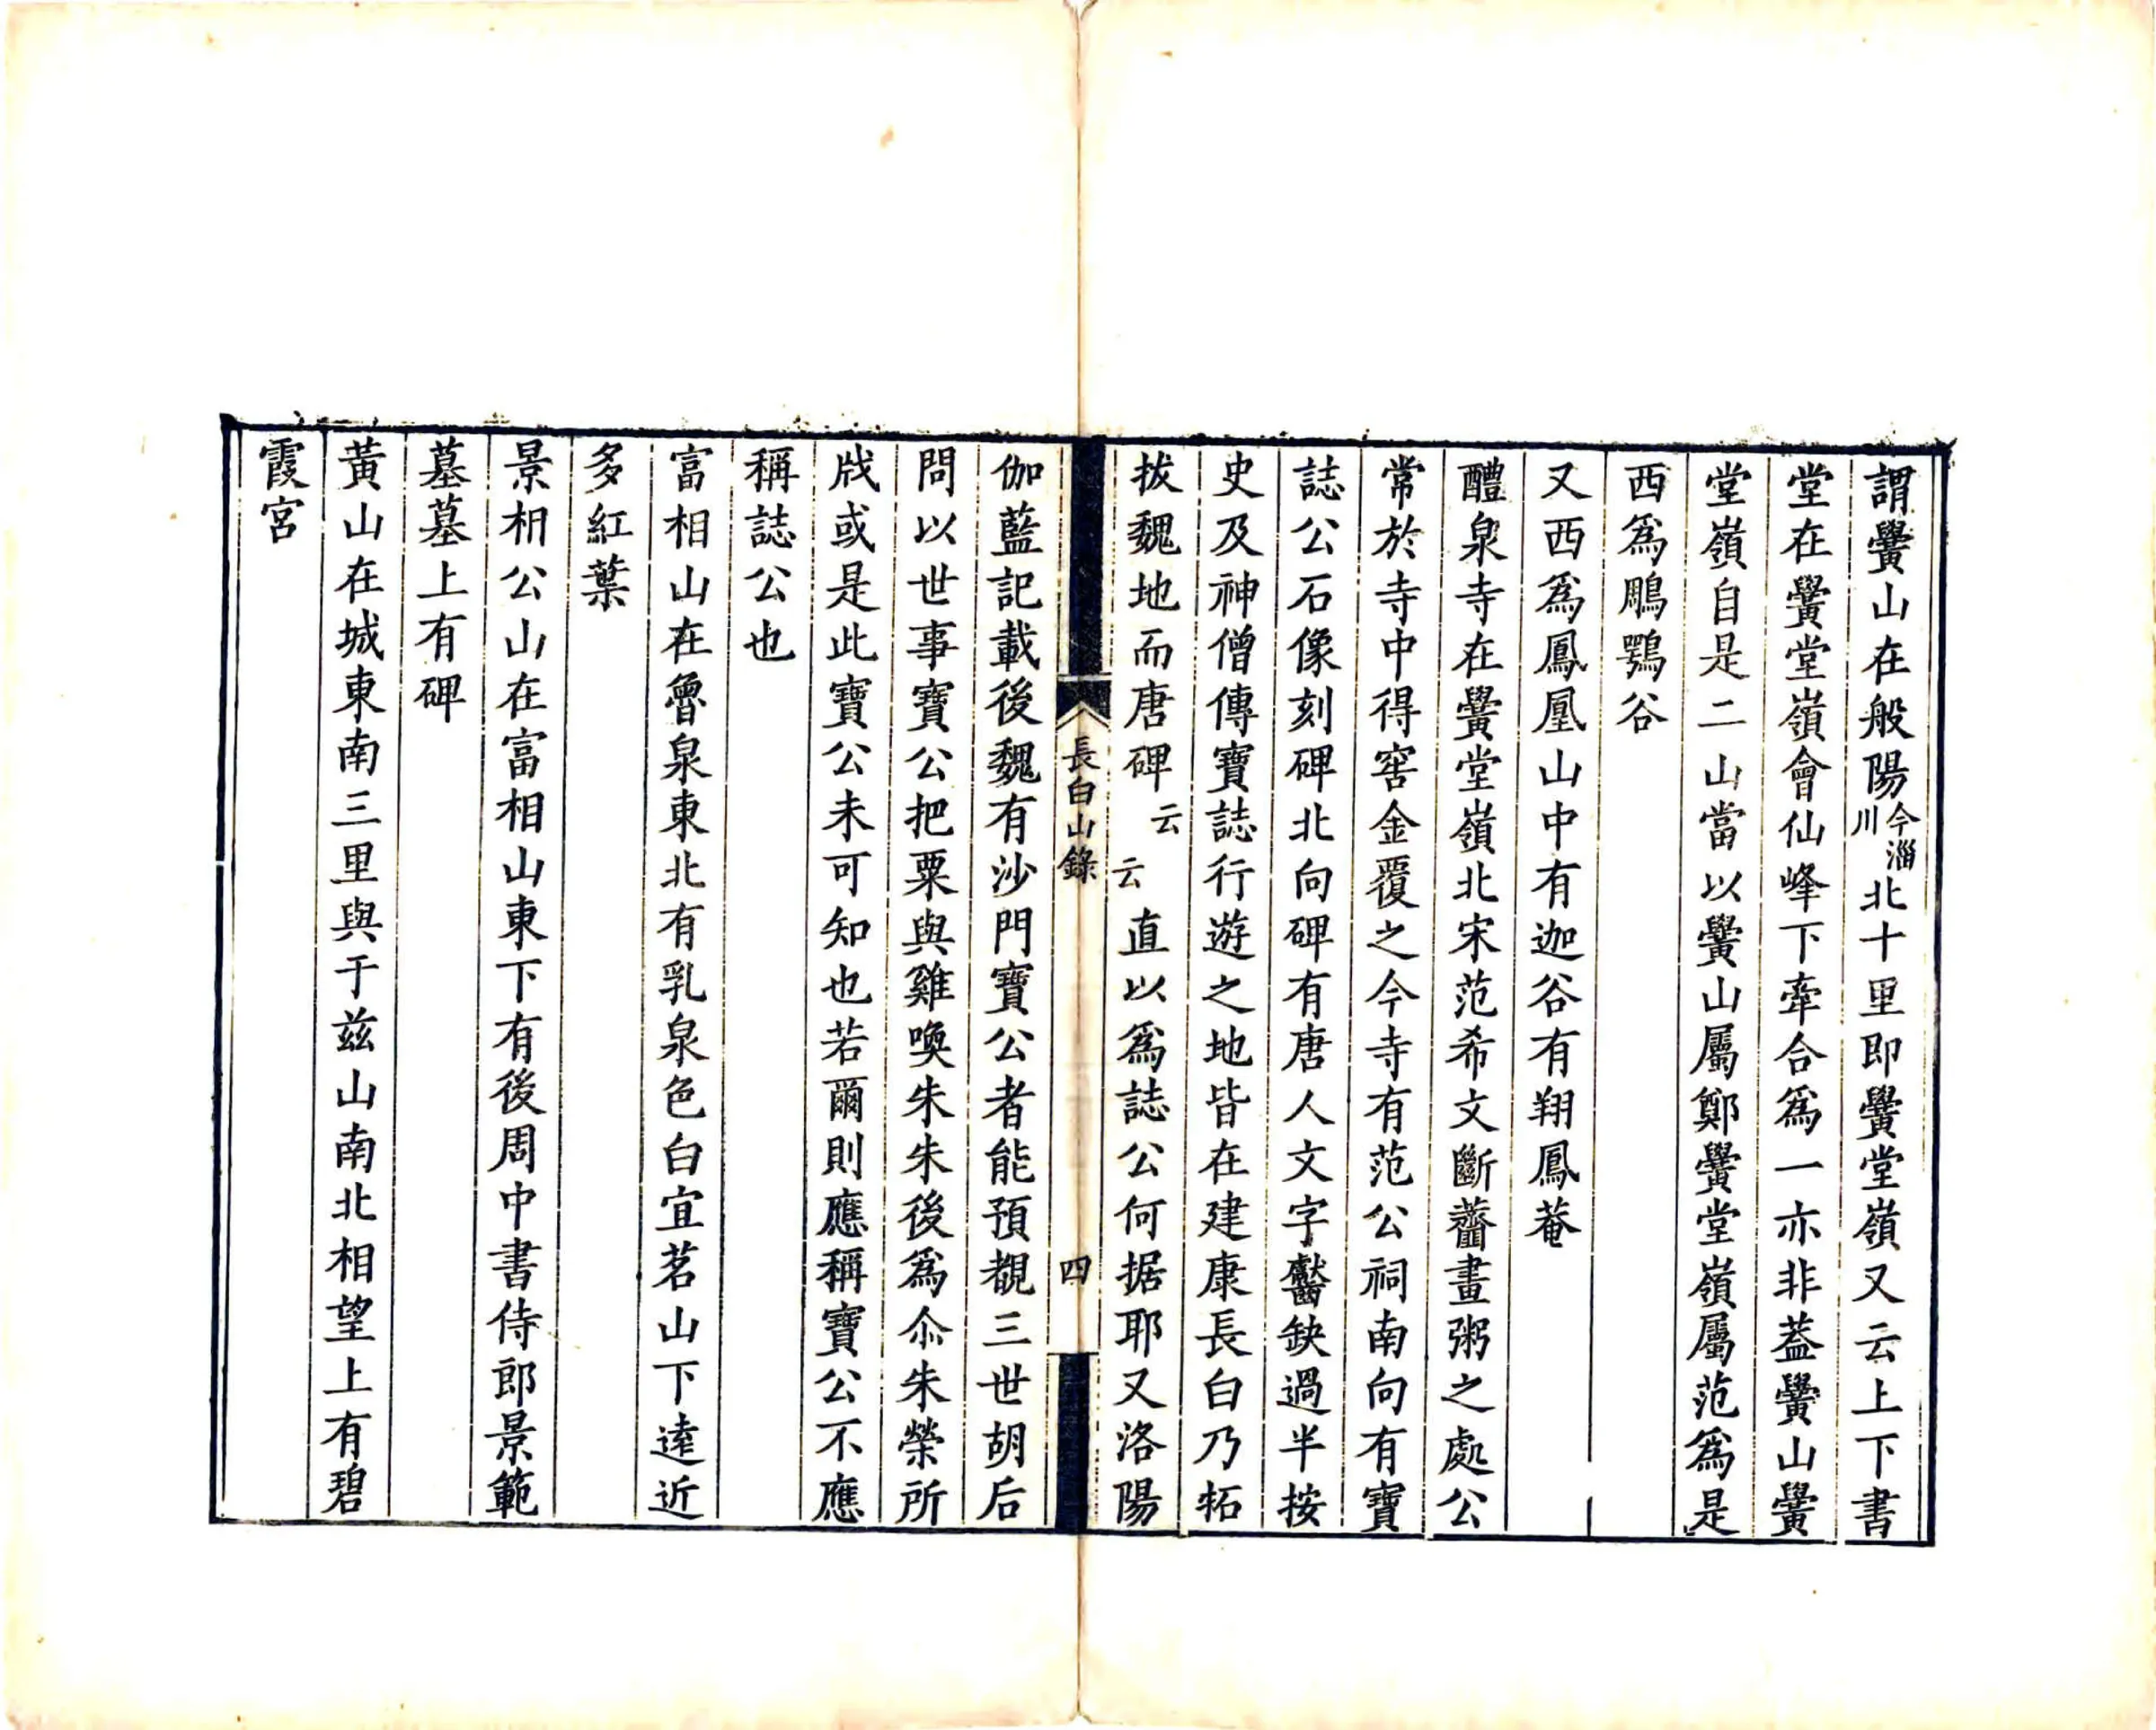 謂黌山在般陽今淄川北十里即黌堂嶺又云上下書
堂在黌堂嶺會仙峰下牽合為一亦非葢黌山黌
堂嶺自是二山當以黌山屬鄭黌堂嶺屬范為是
西為鵰鶚谷
又西為鳳凰山中有迦谷有翔鳳菴
醴泉寺在黌堂嶺北宋范希文斷虀畫粥之處公
常於寺中得窖金覆之今寺有范公祠南向有寶
誌公石像刻碑北向碑有唐人文字齾缺過半按
史及神僧傳寶誌行遊之地皆在建康長白乃拓
拔魏地而唐碑云云直以為誌公何据耶又洛陽
長白山錄
四
伽藍記載後魏有沙門寶公者能預覩三世胡后
問以世事寶公把粟與雞喚朱朱後為尒朱榮所
戕或是此寶公未可知也若爾則應稱寶公不應
稱誌公也
富相山在魯泉東北有乳泉色白宜茗山下逺近
多紅葉
景相公山在富相山東下有後周中書侍郎景範
墓墓上有碑
黃山在城東南三里與于兹山南北相望上有碧
霞宮